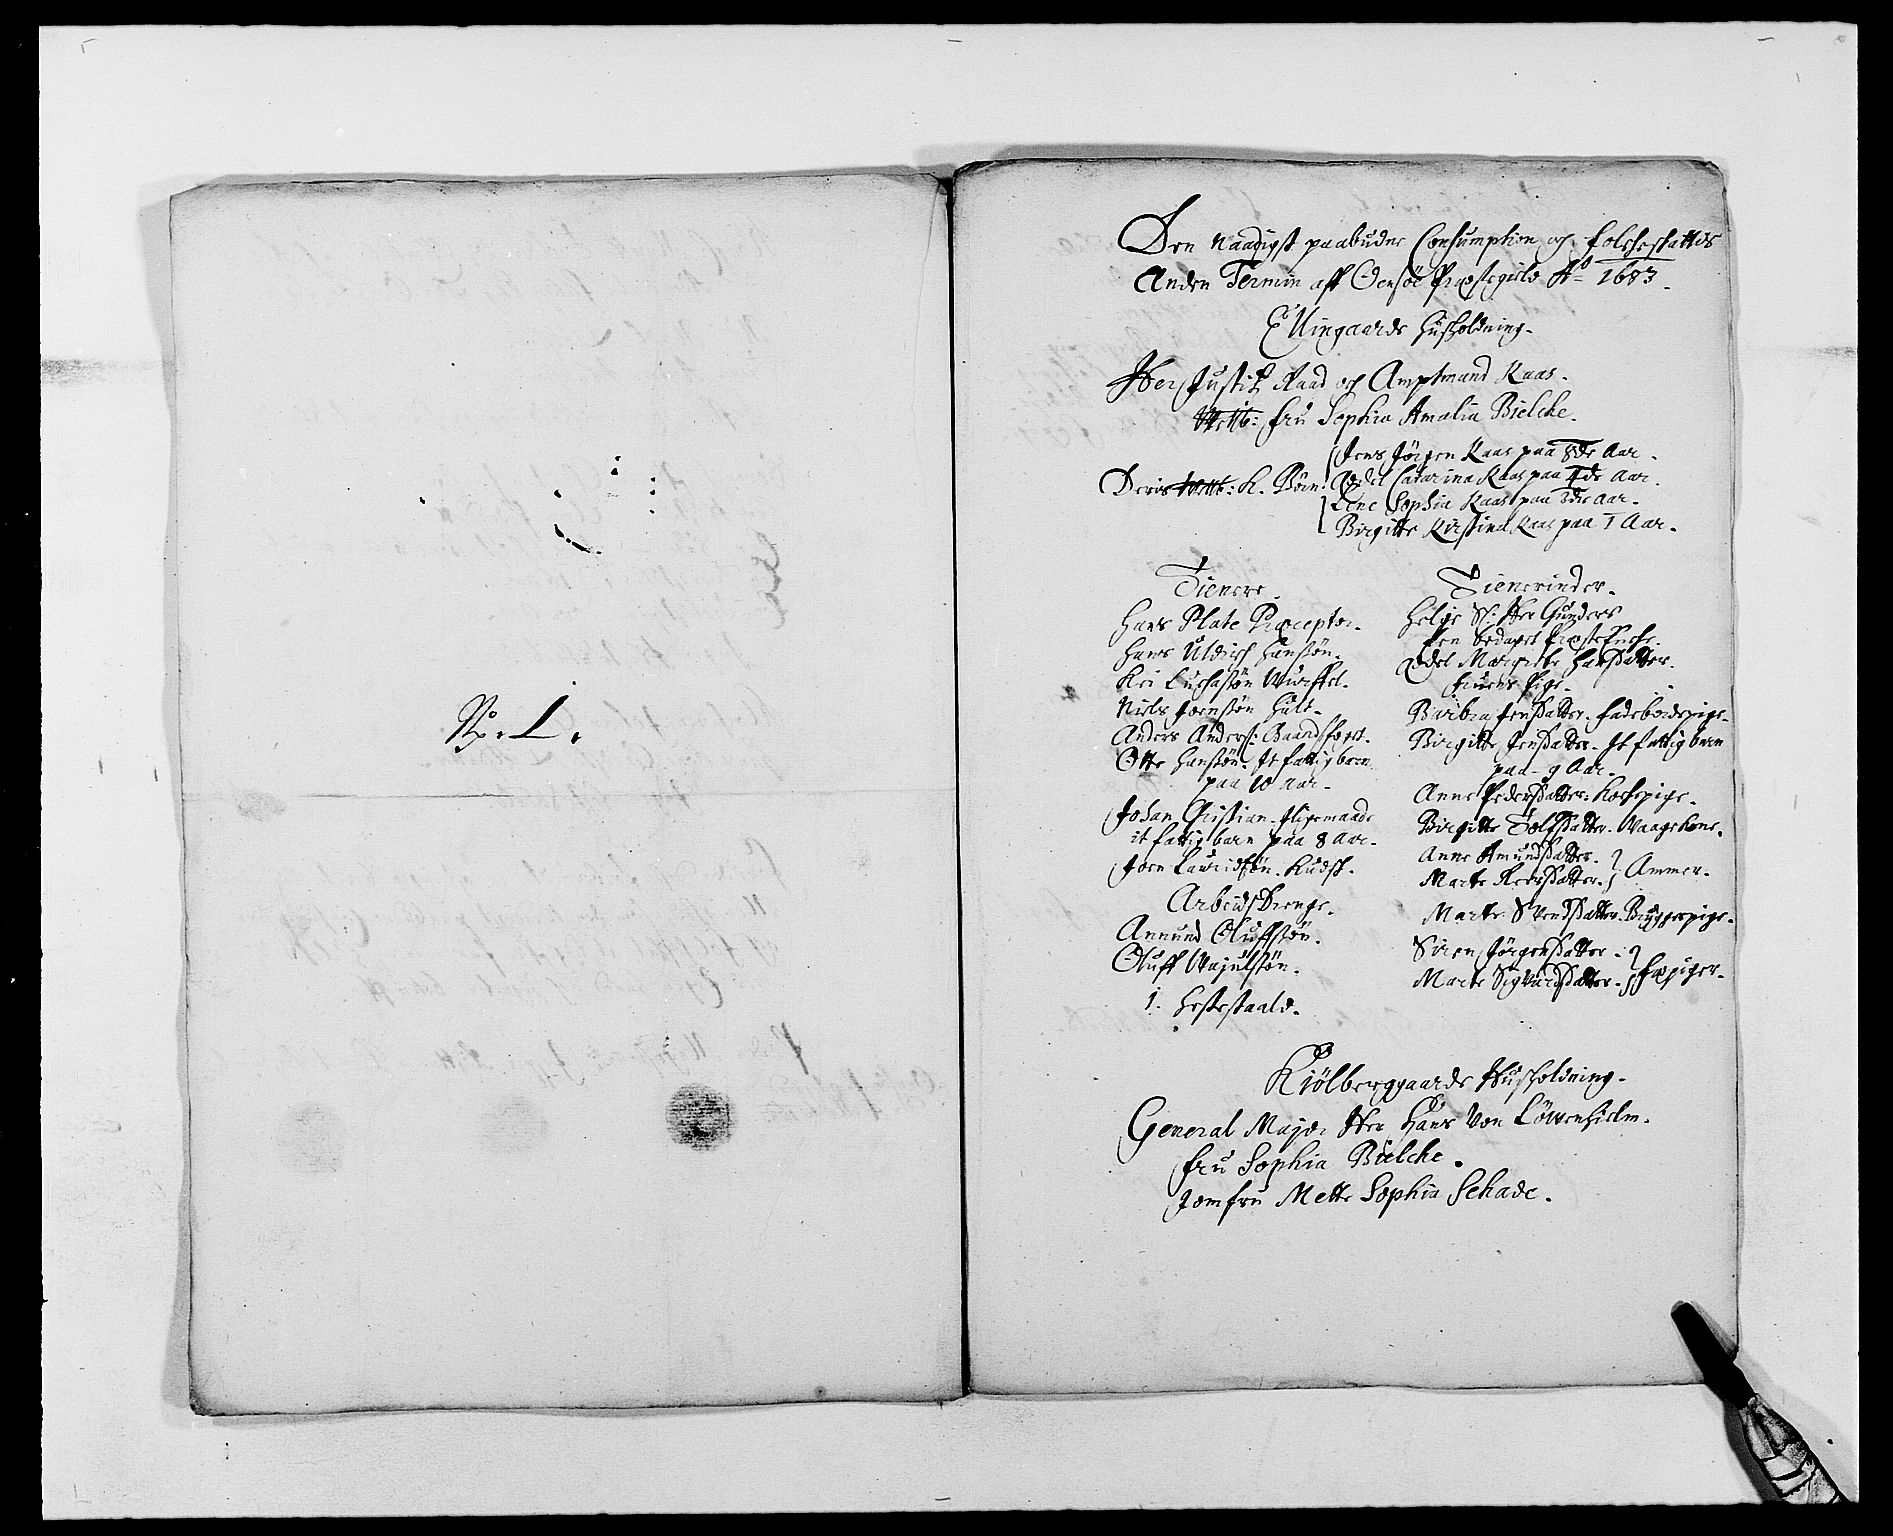 No. L.
Den Naadigst paabudne Consumption och folcheskattes
Anden Termin aff Onsøe Præstegield Ao 1683.
Ellingaards Husholdning.
Her Justitz Raad och Amptmand Kaas.
fru Sophia Amalia Bielche.
Deris K. Børn.
Jens Jørgen Kaas paa 8de Aar.
Edel Catarina Kaas paa 4de Aar.
Lene Sophia Kaas paa 3de Aar.
Birgitte Kirstina Kaas paa 1 Aar.
Tienere.
Hans Plate Præceptor.
Hans Uldrich Hansøn.
Kei Luchasøn Würffel.
Niels Joensøn
Anders Anders: Gaardsfoget.
Otte Hansøn. It fattig barn
paa 10 aar.
Johan Christian. Ligemaade
it fattig barn paa 8 Aar.
Joen Lauridsøn. Kudsk.
Arbeids Drenge.
Amund Oluffsøn.
Oluff
1. Hestestaald.
Tienerinder.
Helge Sl: Her Gunders
en bedaget Præste Enche.
Edel Margrete Hansdatter.
fruens Pige.
Barbra Jensdatter. fadebordspige.
Birgitte Jensdatter. It fattig barn
paa 9 Aar.
Anne Pedersdatter. Kockepige.
Birgitte Tolfsdatter. Waagekone.
Anne Amundsdatter.
Marte Reersdatter. } Ammer.
Marte Svendsdatter. Bryggerpige.
Siren Jørgensdatter.
Marte Sigvardsdatter. } fæpiger.
Kiølberggaards Husholdning.
General Major Her Hans Von Løwenhielm.
fru Sophia Bielche.
Jomfru Mette Sophia Schade.